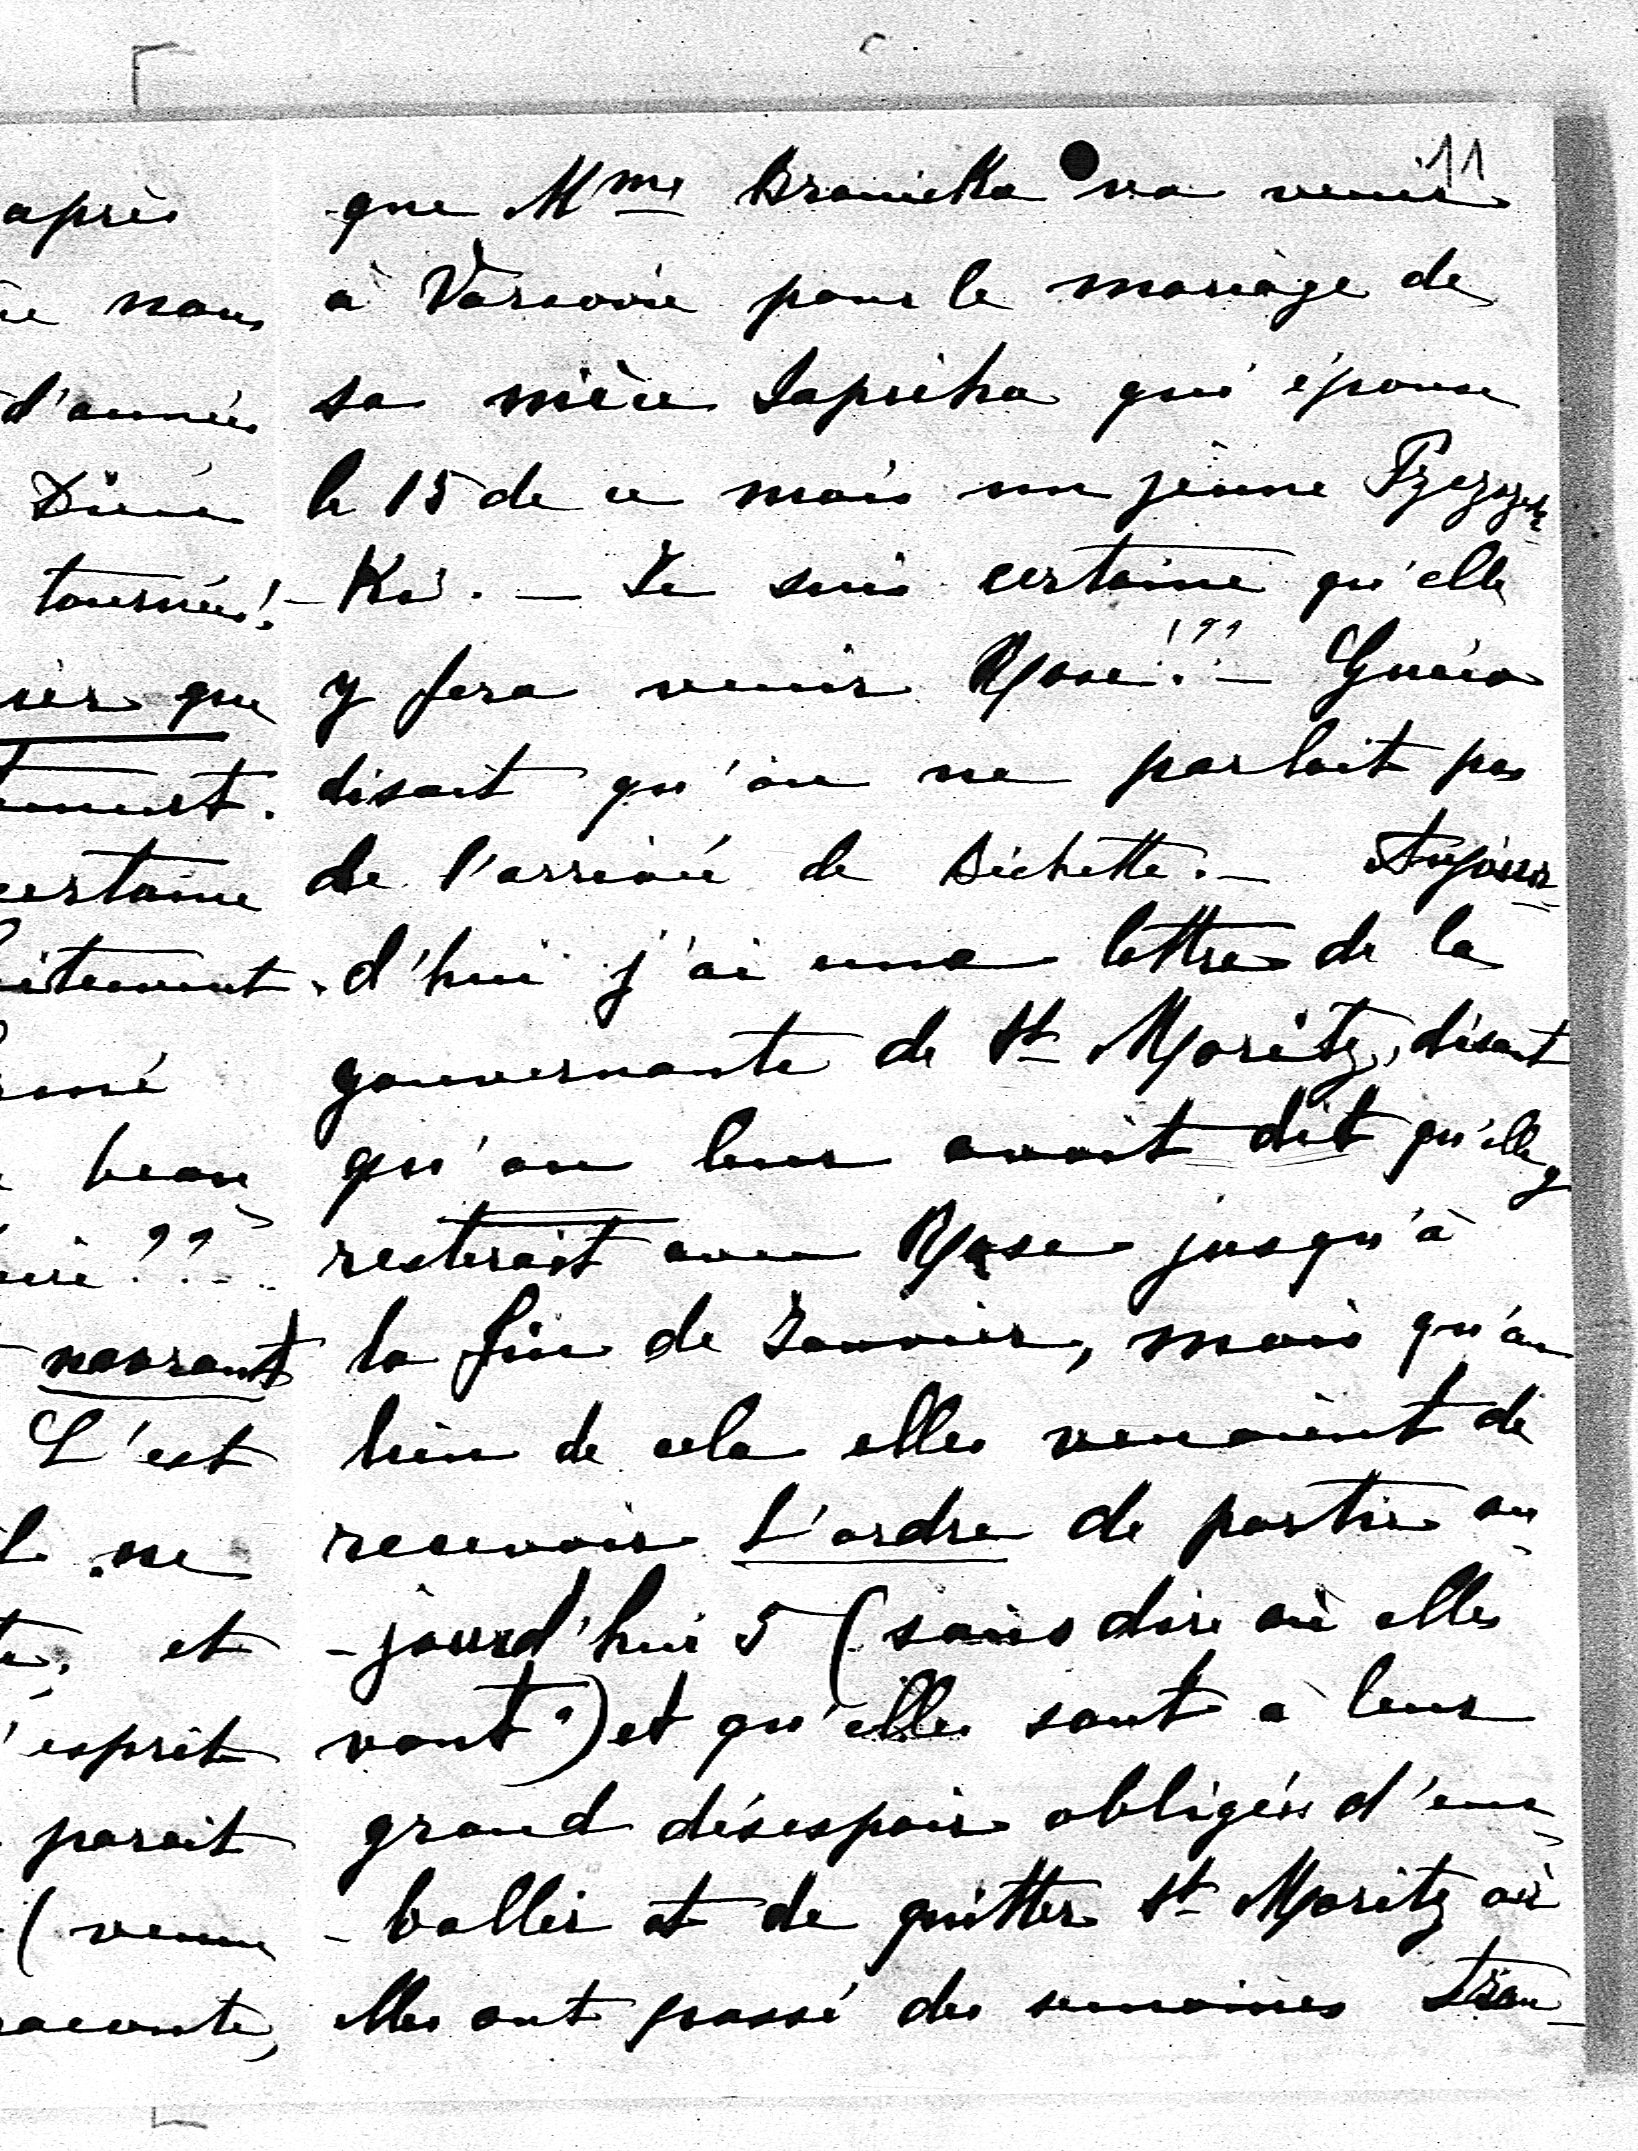 11
que Mme Branicka va venir
à Varsovie pour le mariage de
sa nièce Sapieha qui épouse
le 15 de ce mois un jeune
Ki. — Je suis certaine qu'elle
y fera venir Rose!?? — Gucio
disait qu'on ne parlait pas
de l'arrivée de Bichette. — Aujour=
d'hui j'ai une lettre de la
gouvernante de St Moritz, disant
qu'on leur avait dit qu'elle
resterait avec Rose jusqu'à
la fin de Janvier, mais qu'au
lieu de cela elles venaient de
recevoir L'ordre de partir au-
-jourd'hui 5 (sans dire où elles
vont?) et qu'elles sont à leur
grand désespoir obligées d'em-
-baller et de quitter St Moritz où
elles ont passé des semaines
après
nous
d'année
Dieu
tournée!
que
certaine
beau
??
navrant
C'est
ne
et
esprit
parait
(venue
raconte,